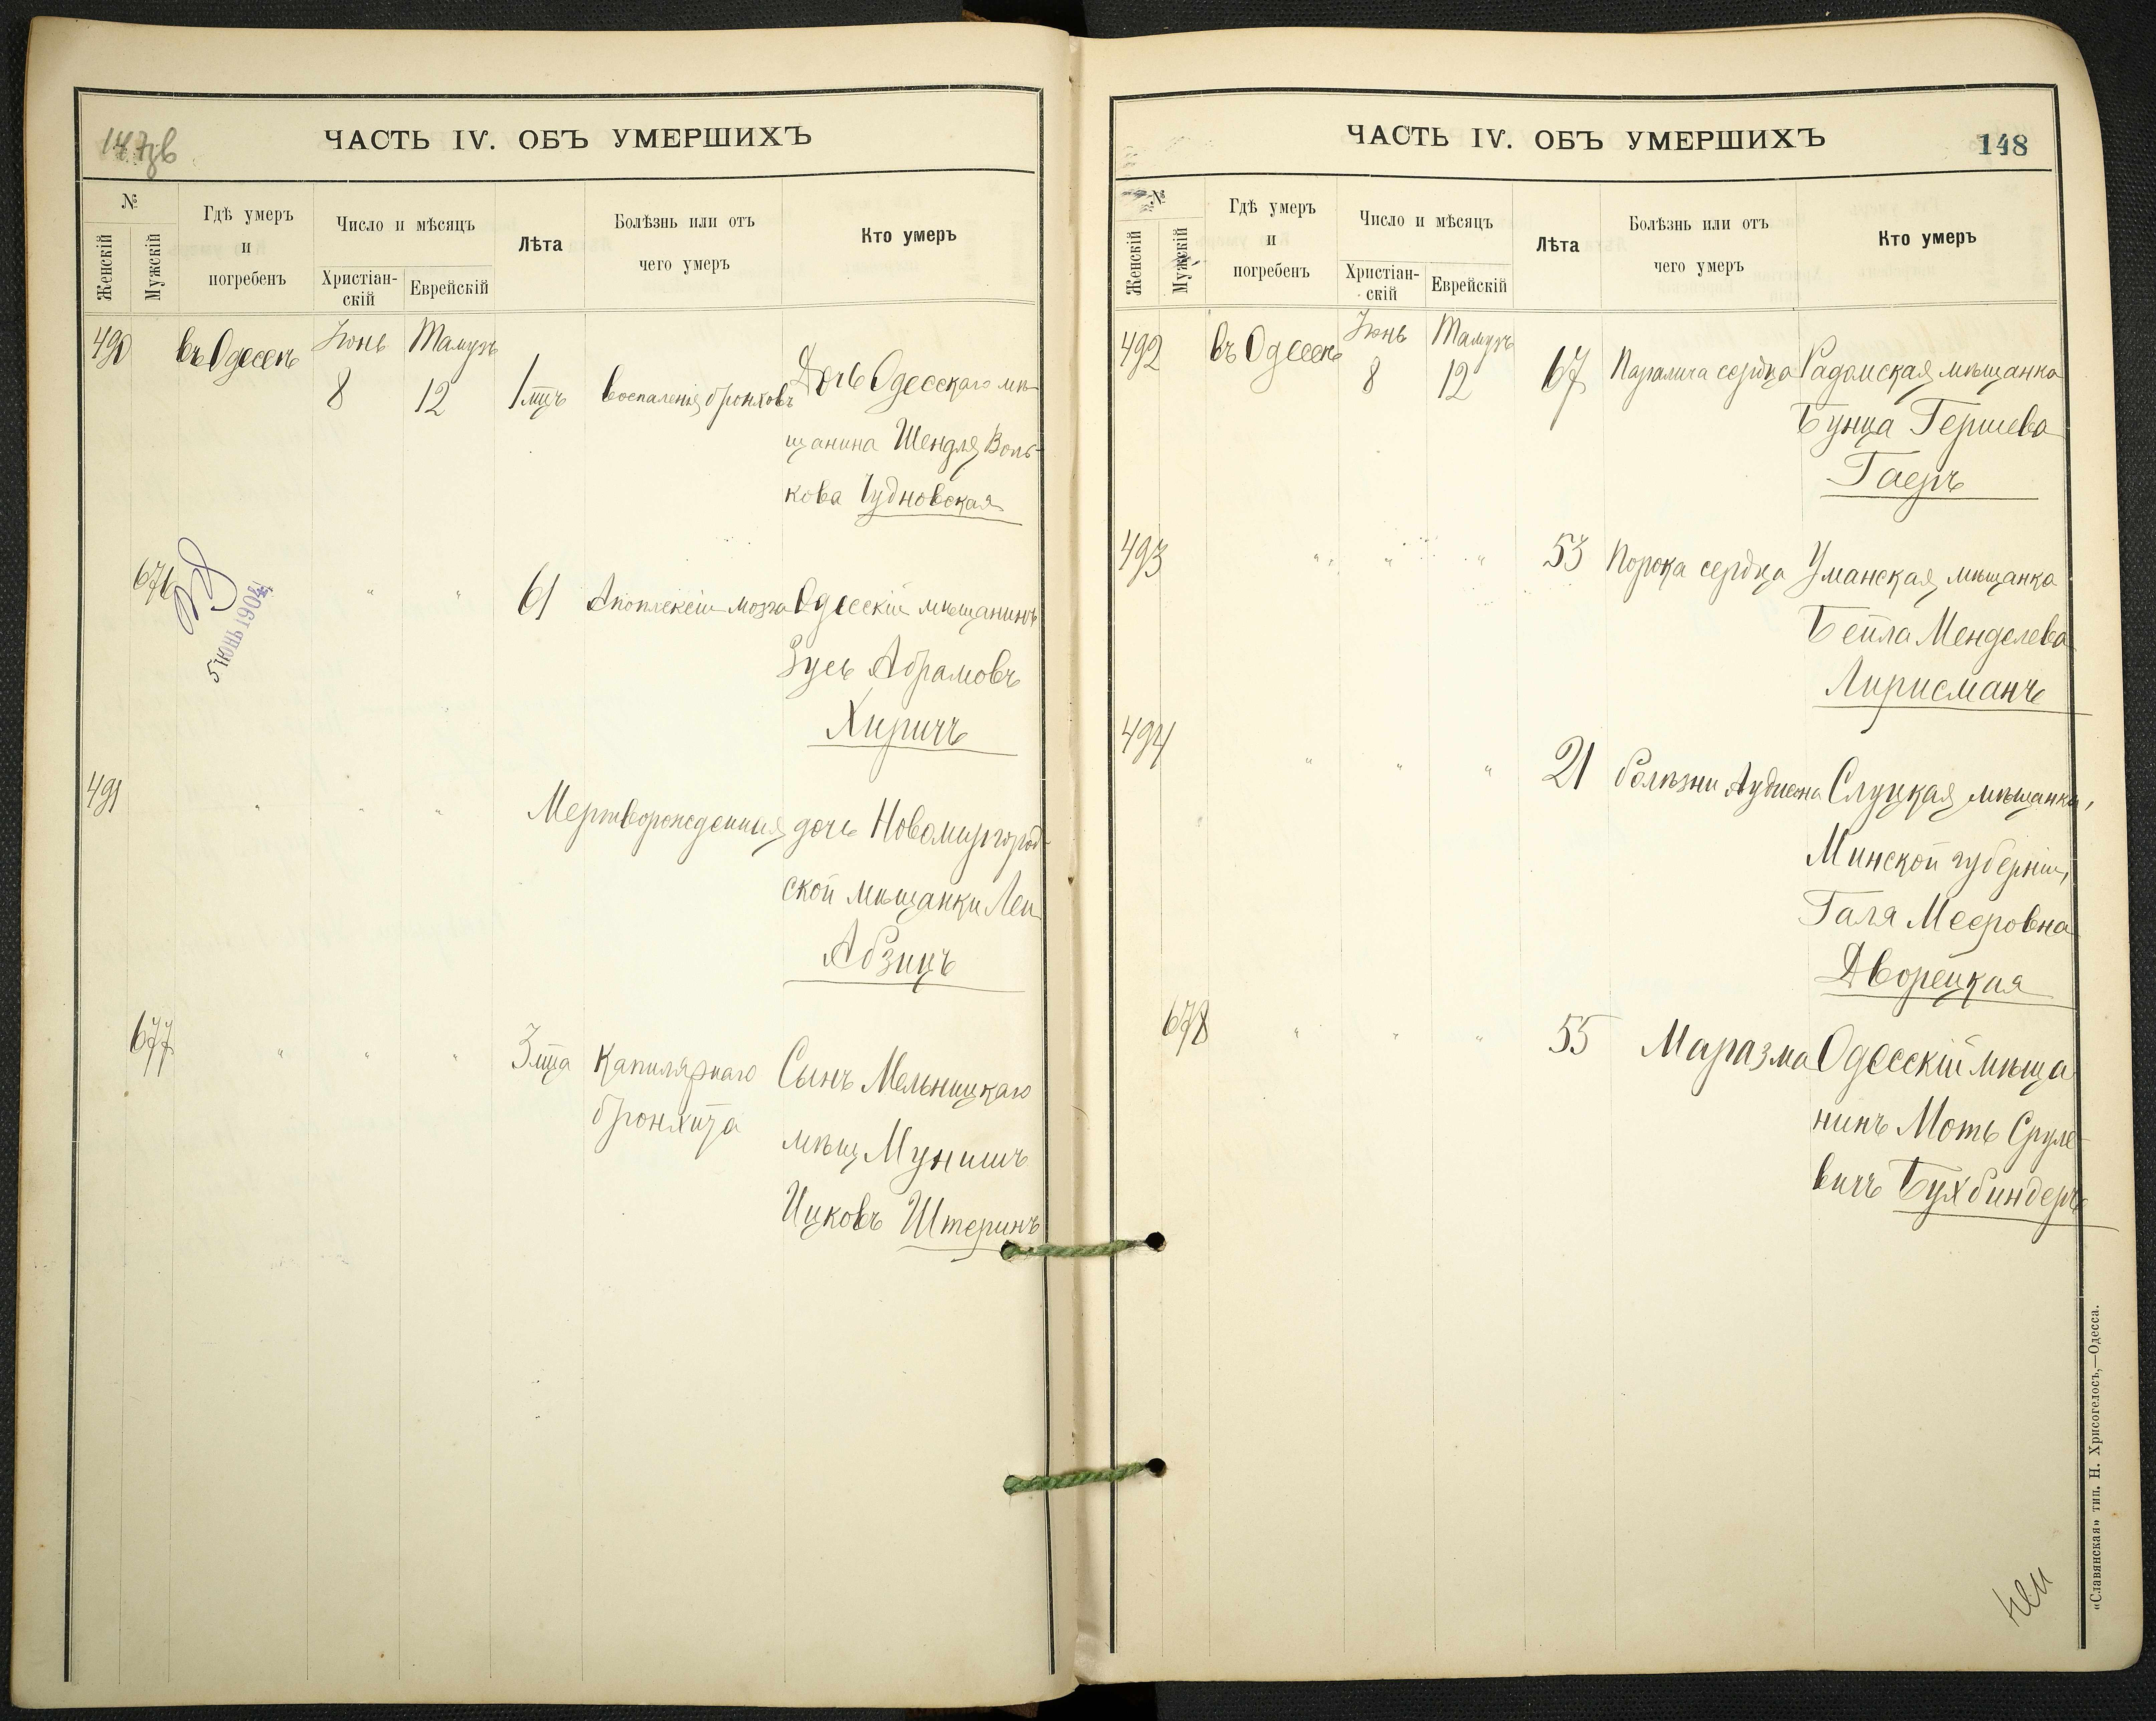 147об
ЧАСТЬ IV. ОБЪ УМЕРШИХЪ
№
Женскій
Мужскій
Гдѣ умеръ
и
погребенъ
Число и мѣсяцъ
Христіан-
скій
Еврейскій
Лѣта
Болѣзнь или отъ
чего умеръ
Кто умеръ
490 въ Одессѣ Іюнь Тамузъ
8 12 1 мцъ воспаленія бронховъ Дочь Одесскаго мѣ-
щанина Шендля Воль-
кова Чудновская
676 " " 61 Апоплексіи мозга Одесскій мѣщанинъ
Зусь Абрамовъ
Хиричъ
5 ІЮНЬ 1904
491 " " " Мертворожденная дочь Новомиргород-
ской мѣщанки Леи
Абзицъ
677 " " " 3 мца Капилярнаго Сынъ Мельницкаго
бронхита мѣщ Мунишъ
Ицковъ Штеринъ
ЧАСТЬ IV. ОБЪ УМЕРШИХЪ
148
№
Женскій
Мужскій
Гдѣ умеръ
и
погребенъ
Число и мѣсяцъ
Христіан-
скій
Еврейскій
Лѣта
Болѣзнь или отъ
чего умеръ
Кто умеръ
492 въ Одессѣ Іюнь Тамузъ
8 12 67 Паралича сердца Радомская мѣщанка
Бунца Гершева
Гаеръ
493 " " " 53 Порока сердца Уманская мѣщанка
Бейла Менделева
Лирисманъ
494 " " " 21 болѣзни Аддисона Слуцкая мѣщанка,
Минской губерніи,
Галя Мееровна
Дворецкая
678 " " " 55 Маразма Одесскій мѣща
нинъ Моть Сруле-
вичъ Бухбиндеръ
«Славянская» тип. Н. Хрисогелосъ,—Одесса.